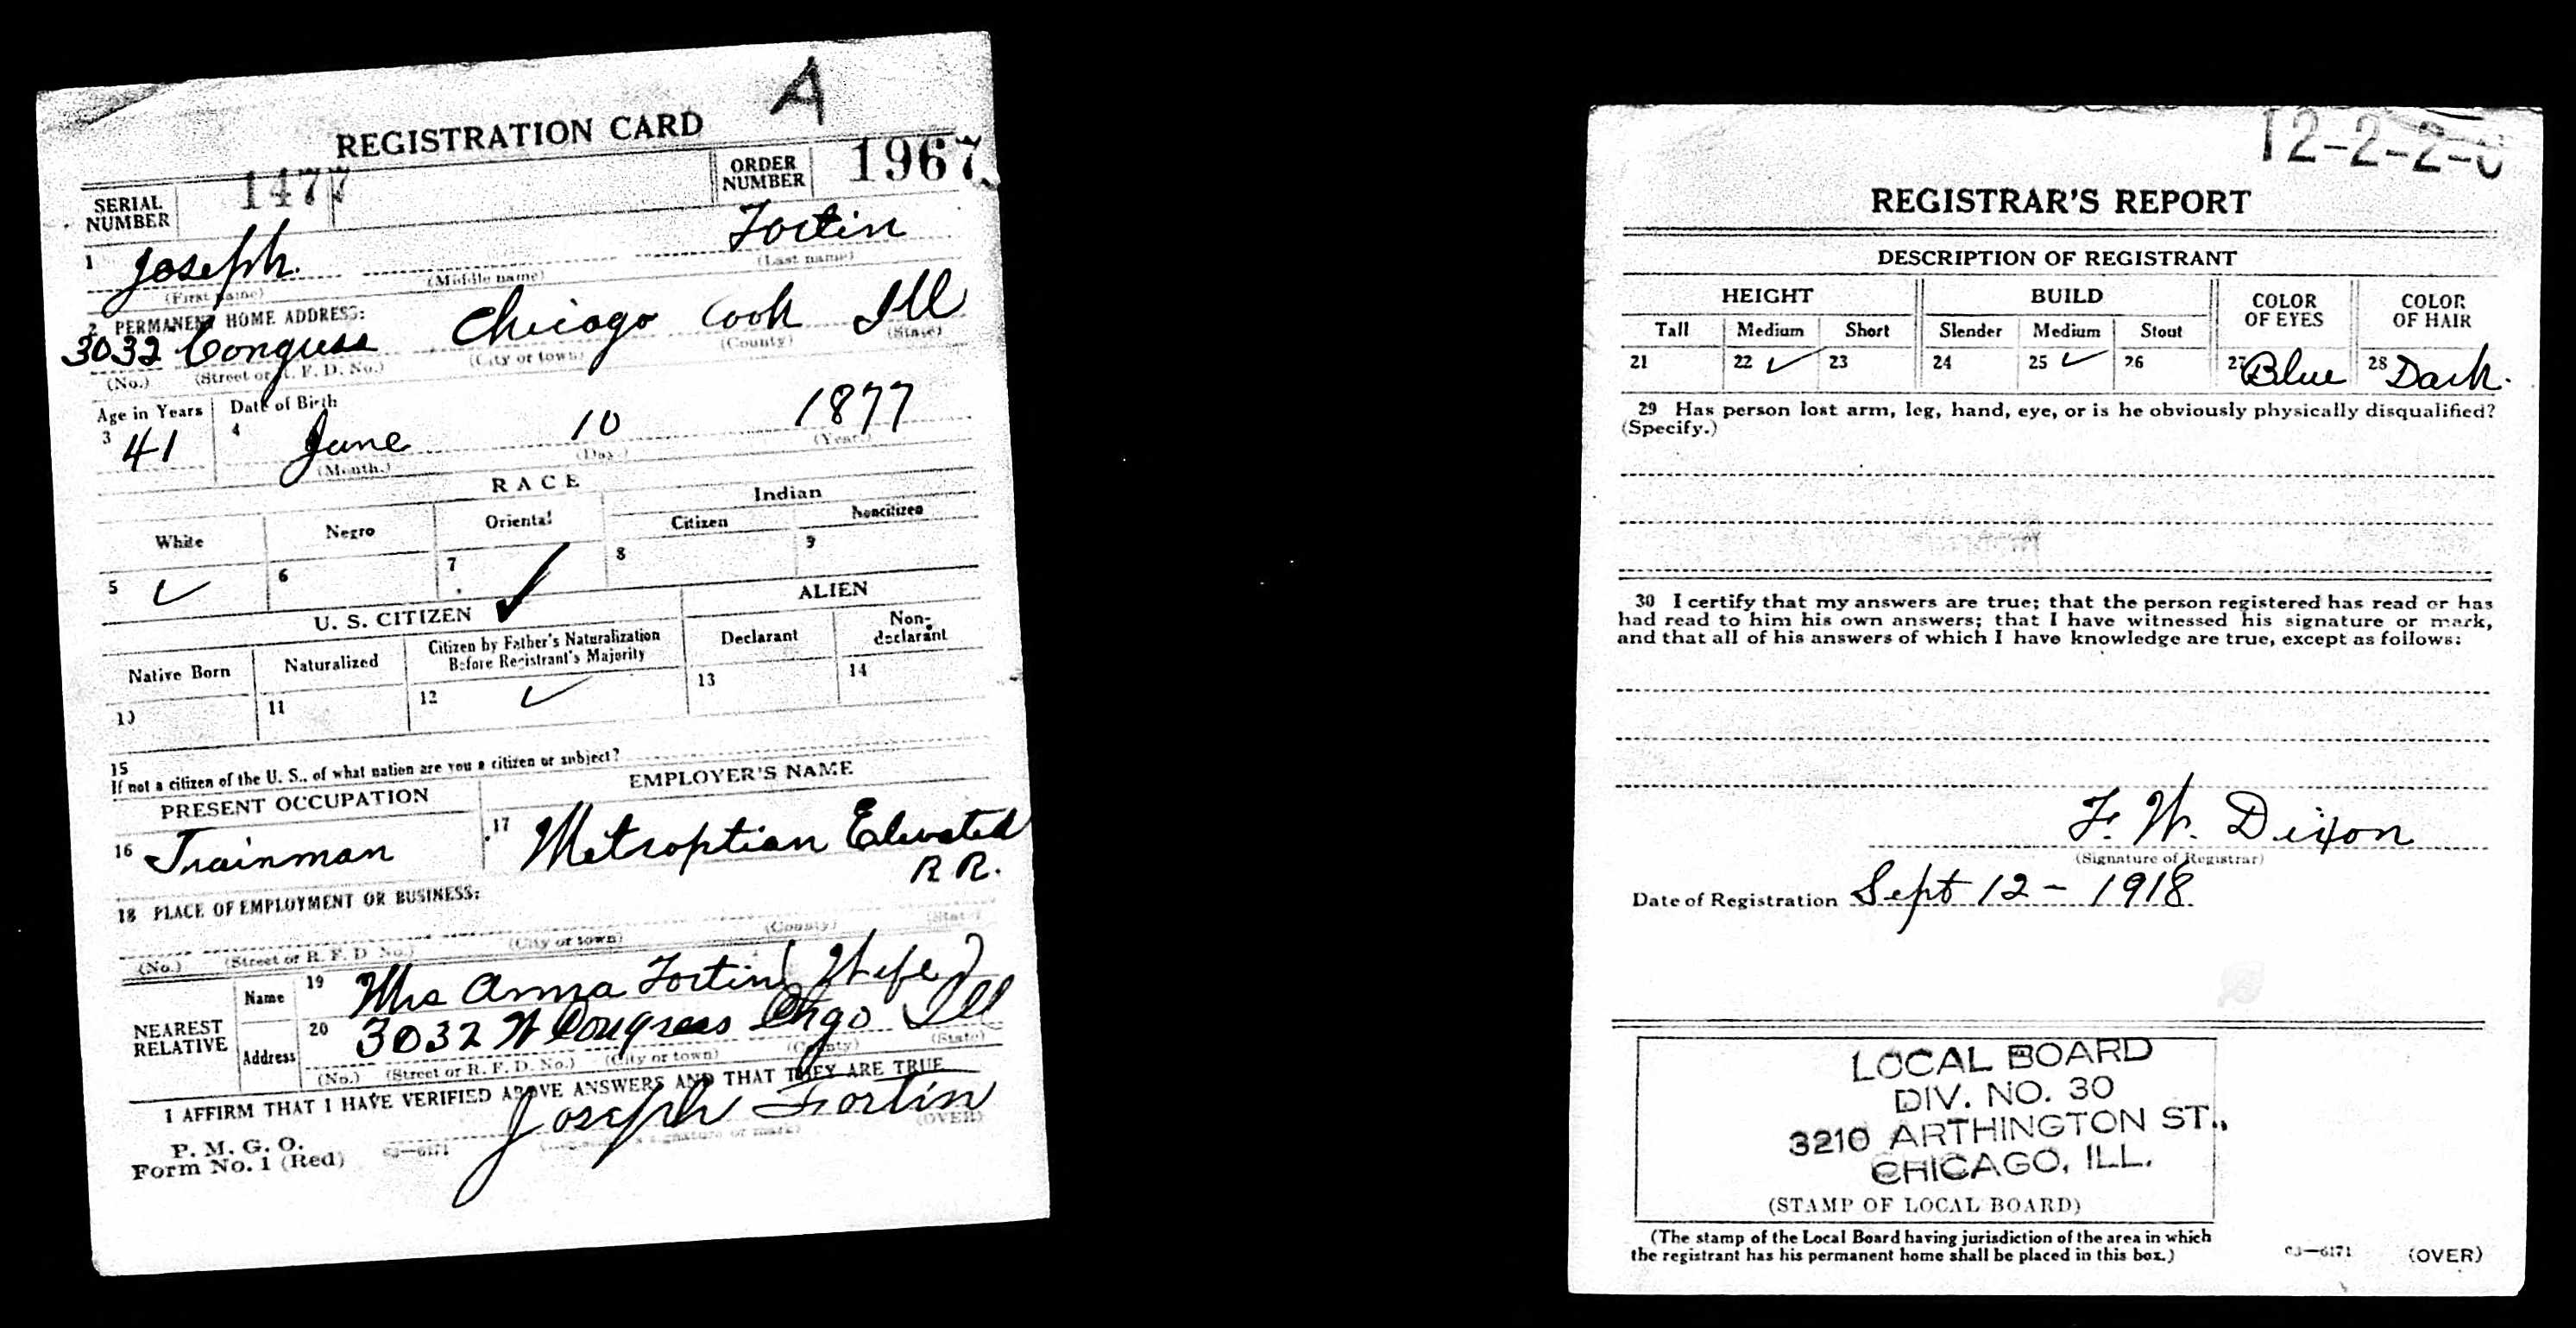 A
REGISTRATION CARD
SERIAL NUMBER 1477 ORDER NUMBER 1967
1 Joseph Fortin
(First name) (Middle name) (Last name)
2 PERMANENT HOME ADDRESS:
3032 Congress Chicago Cook Ill
(No.) (Street or R. F. D. No.) (City or town) (County) (State)
Age in Years Date of Birth
3 41 4 June 10 1877
(Month.) (Day.) (Year.)
RACE
White Negro Oriental Indian
Citizen Noncitizen
5 ✓ 6 7 ✓ 8 9
U. S. CITIZEN ALIEN
Native Born Naturalized Citizen by Father's Naturalization Before Registrant's Majority Declarant Non-declarant
10 11 12 ✓ 13 14
15
If not a citizen of the U. S., of what nation are you a citizen or subject?
PRESENT OCCUPATION EMPLOYER'S NAME
16 Trainman 17 Metroptian Elevated
R R.
18 PLACE OF EMPLOYMENT OR BUSINESS:
(No.) (Street or R. F. D. No.) (City or town) (County) (State)
NEAREST RELATIVE
Name 19 Mrs Anna Fortin (Wife)
Address 20 3032 W Congress Chgo Ill
(No.) (Street or R. F. D. No.) (City or town) (County) (State)
I AFFIRM THAT I HAVE VERIFIED ABOVE ANSWERS AND THAT THEY ARE TRUE
P. M. G. O.
Form No. 1 (Red) 03—6171 Joseph Fortin (OVER)
(Registrant's signature or mark)
12-2-2-C
REGISTRAR'S REPORT
DESCRIPTION OF REGISTRANT
HEIGHT BUILD COLOR OF EYES COLOR OF HAIR
Tall Medium Short Slender Medium Stout
21 22 ✓ 23 24 25 ✓ 26 27 Blue 28 Dark.
29 Has person lost arm, leg, hand, eye, or is he obviously physically disqualified?
(Specify.)
30 I certify that my answers are true; that the person registered has read or has
had read to him his own answers; that I have witnessed his signature or mark,
and that all of his answers of which I have knowledge are true, except as follows:
F. W. Dixon
(Signature of Registrar)
Date of Registration Sept 12 - 1918
LOCAL BOARD
DIV. NO. 30
3210 ARTHINGTON ST.,
CHICAGO, ILL.
(STAMP OF LOCAL BOARD)
(The stamp of the Local Board having jurisdiction of the area in which
the registrant has his permanent home shall be placed in this box.)
03—6171 (OVER)